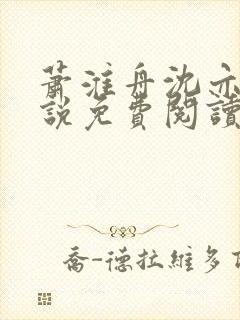 蕭淮舟沈亦
說免費閱讀
喬-德拉維多